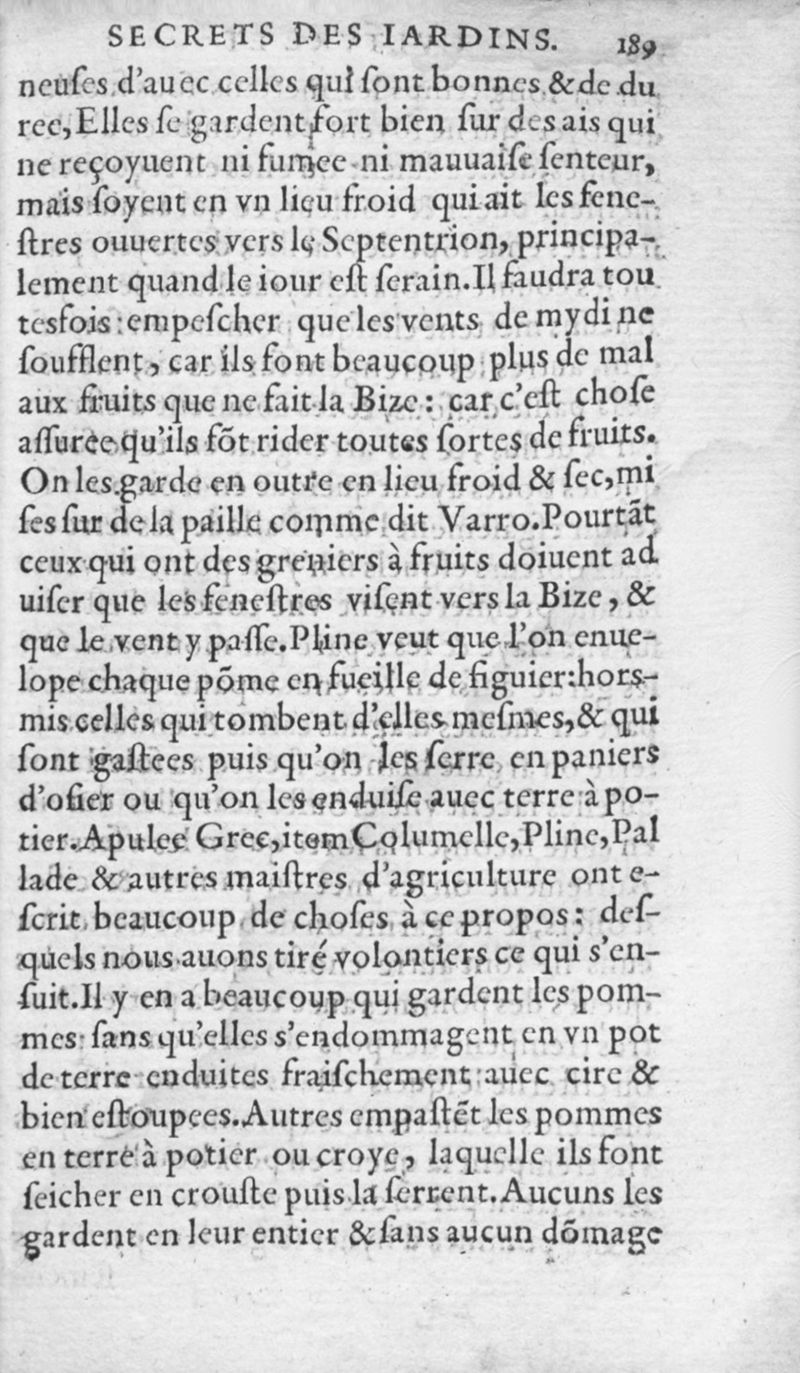 SECRETS DES IARDINS. 189
neuſes d'auec celles qui ſont bonnes & de du
ree, Elles ſe gardent fort bien ſur des ais qui
ne reçoyuent ni fumee ni mauuaiſe ſenteur,
mais ſoyent en vn lieu froid qui ait les fene-
ſtres ouuertes vers le Septentrion, principa-
lement quand le iour eſt ſerain. Il faudra tou
tesfois empeſcher que les vents de mydi ne
ſoufflent, car ils font beaucoup plus de mal
aux fruits que ne fait la Bize : car c'eſt choſe
aſſuree qu'ils fõt rider toutes ſortes de fruits.
On les garde en outre en lieu froid & ſec, mi
ſes ſur de la paille comme dit Varro. Pourtãt
ceux qui ont des greniers à fruits doiuent ad
uiſer que les feneſtres viſent vers la Bize, &
que le vent y paſſe. Pline veut que l'on enue-
lope chaque põme en fueille de figuier: hors-
mis celles qui tombent d'elles meſmes, & qui
ſont gaſtees puis qu'on les ſerre en paniers
d'oſier ou qu'on les enduiſe auec terre à po-
tier. Apulee Grec, item Columelle, Pline, Pal
lade & autres maiſtres d'agriculture ont e-
ſcrit beaucoup de choſes à ce propos: deſ-
quels nous auons tiré volontiers ce qui s'en-
ſuit. Il y en a beaucoup qui gardent les pom-
mes ſans qu'elles s'endommagent en vn pot
de terre enduites fraiſchement auec cire &
bien eſtoupees. Autres empaſtẽt les pommes
en terre à potier ou croye, laquelle ils font
ſeicher en crouſte puis la ſerrent. Aucuns les
gardent en leur entier & ſans aucun dõmage